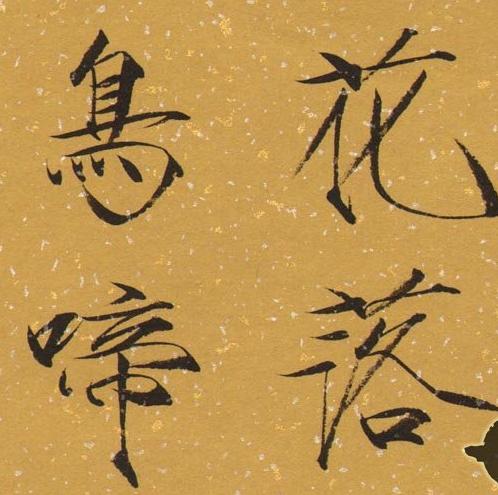 花落
鳥啼